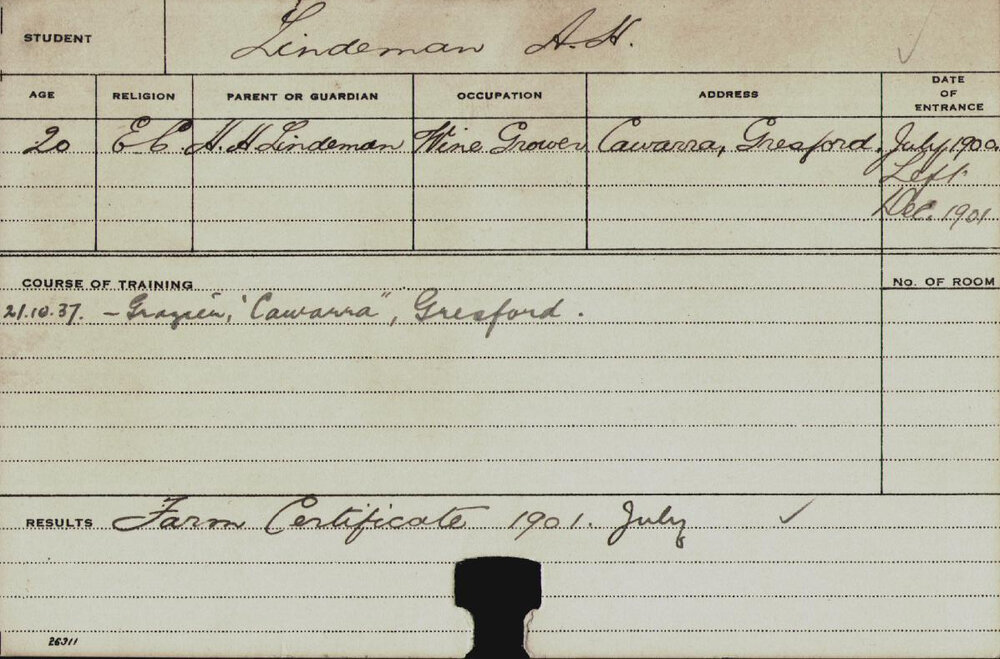 STUDENT Lindeman A. H.
AGE RELIGION PARENT OR GUARDIAN OCCUPATION ADDRESS DATE OF ENTRANCE
20 E.C. H. H Lindeman Wine Grower Cawarra, Gresford. July, 1900.
Left
Dec. 1901
COURSE OF TRAINING No. OF ROOM
21.10.37. - Grazier, "Cawarra", Gresford.
RESULTS Farm Certificate 1901. July
26911